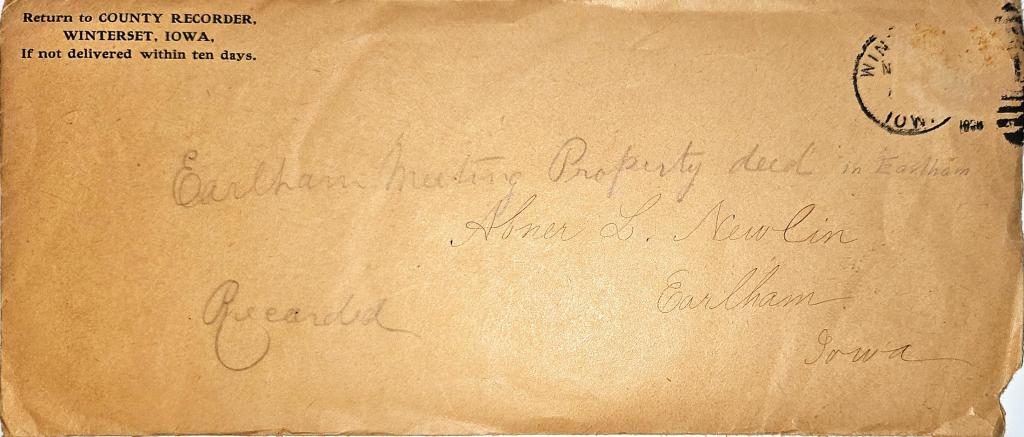 Return to COUNTY RECORDER,
WINTERSET, IOWA,
If not delivered within ten days.
WIN
N
IOW
Earlham Meeting Property deed in Earlham
Abner L. Newlin
Earlham
Recorded
Iowa